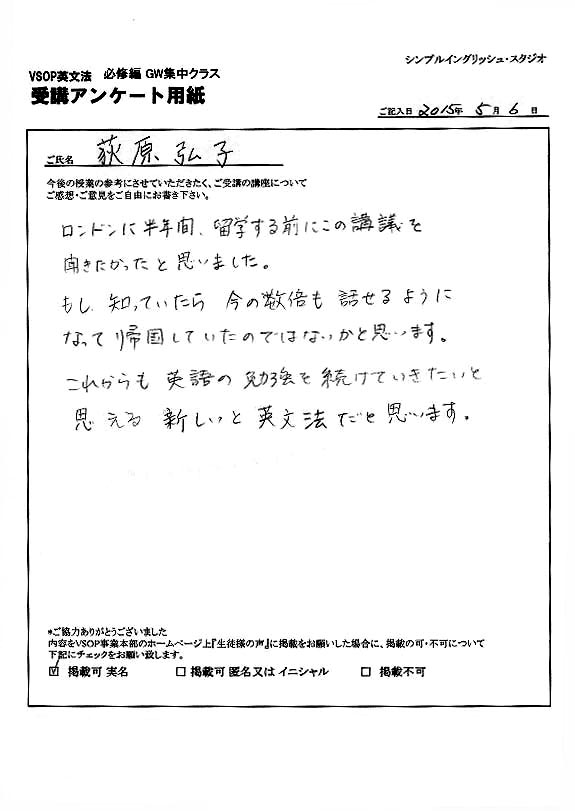 シンプルイングリッシュ・スタジオ
VSOP英文法 必修編 GW集中クラス
受講アンケート用紙
ご記入日 2015年 5月 6日
ご氏名 荻原弘子
今後の授業の参考にさせていただきたく、ご受講の講座について
ご感想・ご意見をご自由にお書き下さい。
ロンドンに半年間、留学する前にこの講議を
聞きたかったと思いました。
もし、知っていたら 今の数倍も 話せるように
なって帰国していたのではないかと思います。
これからも 英語の勉強を続けていきたいと
思える 新しいと英文法だと思います。
*ご協力ありがとうございました
内容をVSOP事業本部のホームページ上『生徒様の声』に掲載をお願いした場合に、掲載の可・不可について
下記にチェックをお願い致します。
☑ 掲載可 実名 □ 掲載可 匿名又は イニシャル □ 掲載不可